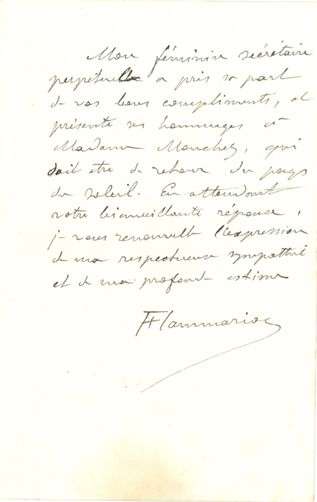 Mon féminin secrétaire
perpetuelle a pris sa part
de vos bons compliments, et
présente ses hommages à
Madame Mouchez, qui
doit être de retour du pays
du soleil. En attendant
votre bienveillante réponse,
je vous renouvelle l'expression
de ma respectueuse sympathie
et de ma profonde estime
Flammarion